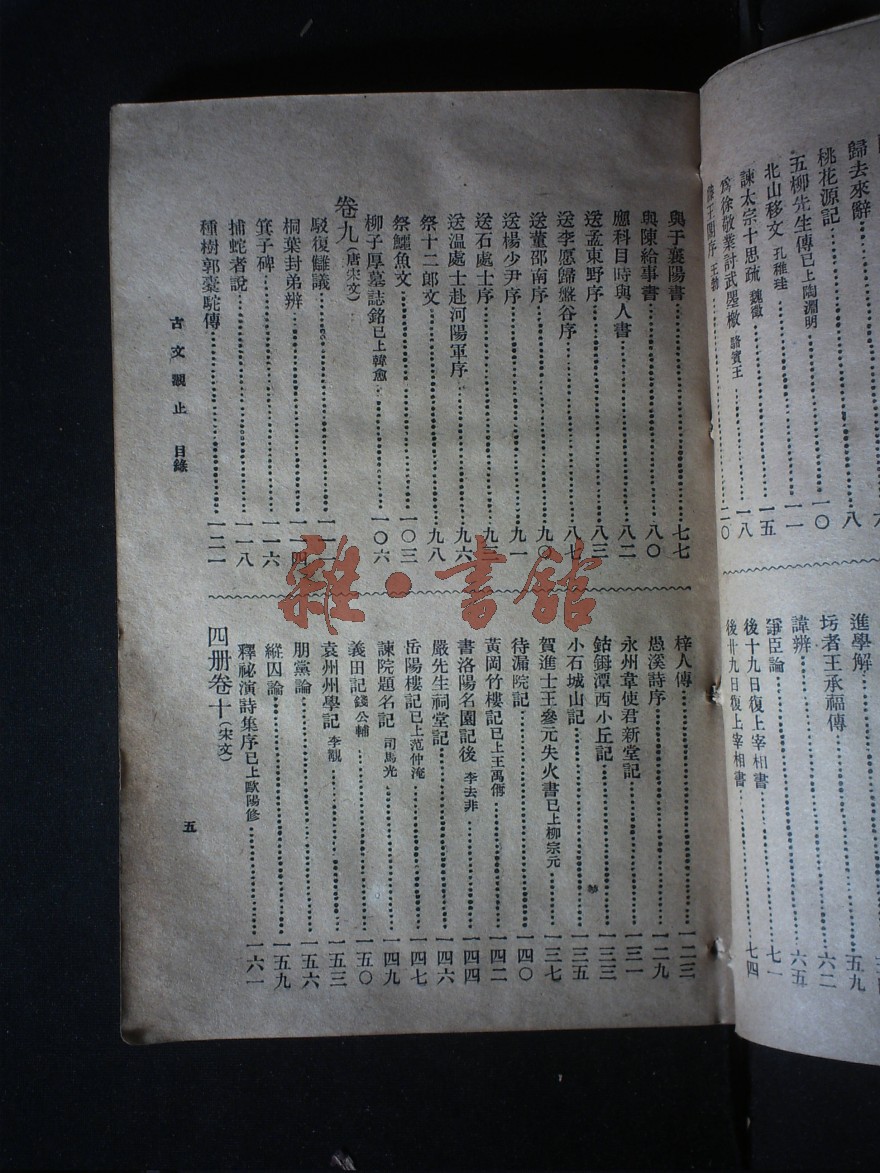 歸去來辭
桃花源記 八
五柳先生傳已上陶淵明 一〇
北山移文 孔稚珪 一一
諫太宗十思疏 魏徵 一五
爲徐敬業討武曌檄 駱賓王 一八
滕王閣序 王勃 二〇
進學解 五九
圬者王承福傳 六二
諱辨 六五
爭臣論 七一
後十九日復上宰相書
後廿九日復上宰相書 七四
與于襄陽書 七七
與陳給事書 八〇
應科目時與人書 八二
送孟東野序 八三
送李愿歸盤谷序 八七
送董邵南序 九〇
送楊少尹序 九一
送石處士序 九三
送温處士赴河陽軍序 九六
祭十二郎文 九八
祭鱷魚文 一〇三
柳子厚墓誌銘已上韓愈 一〇六
卷九(唐宋文)
駁復讎議 一一一
桐葉封弟辨 一一四
箕子碑 一一六
捕蛇者說 一一八
種樹郭橐駝傳 一二一
梓人傳 一二三
愚溪詩序 一二九
永州韋使君新堂記 一三一
鈷鉧潭西小丘記 一三三
小石城山記 一三五
賀進士王參元失火書已上柳宗元 一三七
待漏院記 一四〇
黃岡竹樓記已上王禹偁 一四二
書洛陽名園記後 李去非 一四四
嚴先生祠堂記 一四六
岳陽樓記已上范仲淹 一四七
諫院題名記 司馬光 一四九
義田記 錢公輔 一五〇
袁州州學記 李覯 一五三
朋黨論 一五六
縱囚論 一五九
釋祕演詩集序已上歐陽修 一六一
四册卷十(宋文)
古文觀止 目錄
五
雜·書館